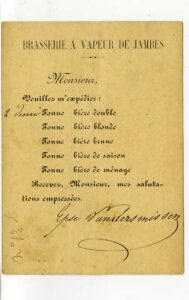 BRASSERIE À VAPEUR DE JAMBES
Monsieur,
Veuillez m'expédier :
2 Tonne bière double
Tonne bière blonde
Tonne bière brune
Tonne bière de saison
Tonne bière de ménage
Recevez, Monsieur, mes saluta-
tions empressées.
Vandersmissen